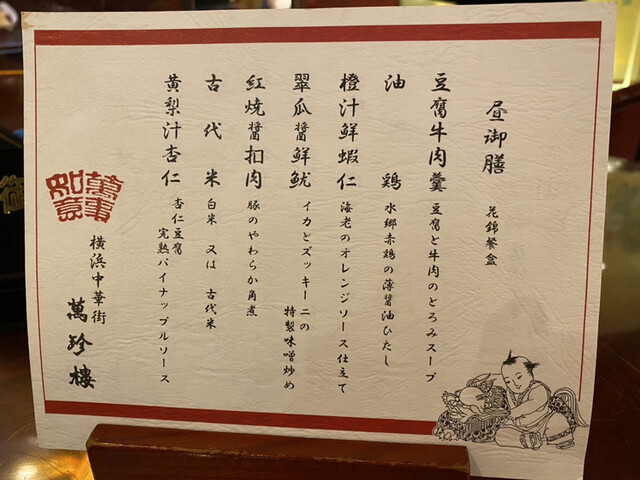 昼御膳 花錦餐盒
豆腐牛肉羹 豆腐と牛肉のとろみスープ
油鶏 水郷赤鶏の薄醤油ひたし
橙汁鮮蝦仁 海老のオレンジソース仕立て
翠瓜醬鮮魷 イカとズッキーニの
特製味噌炒め
紅焼醬扣肉 豚のやわらか角煮
古代米 白米 又は 古代米
黄梨汁杏仁 杏仁豆腐
完熟パイナップルソース
萬事
如意
横浜中華街
萬珍樓